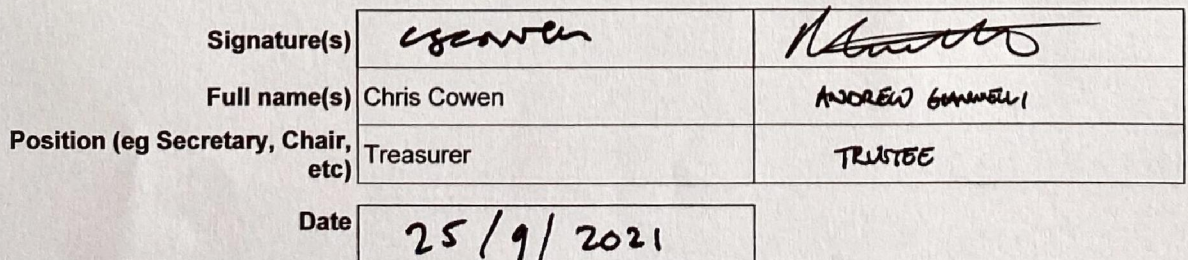 Signature(s) cscowen
Full name(s) Chris Cowen ANDREW
Position (eg Secretary, Chair, etc) Treasurer TRUSTEE
Date 25/9/2021